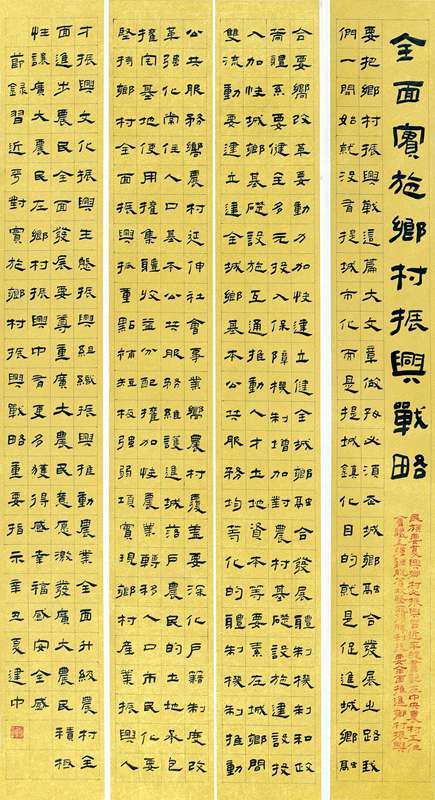 全面實施鄉村振興戰略
要把鄉村振興戰這篇大文章做好必須走城鄉融合發展之路我
們一開始就沒有提城市化而是提城鎮化目的就是促進城鄉融
民族要復興鄉村必振興習近平總書記在中央農村工作
全面推進鄉村振興
合要嚮改革要動力加快建立健全城鄉融合發展體制機制和政
策體系要健全多元投入保障機制增加對農村基礎設施建設投
入加快城鄉基礎設施互通推動人才土地資本等要素在城鄉間
雙流動要建立建全城鄉基本公共服務均等化的體制機制推動
公共服務嚮農村延伸社會事業嚮農村覆蓋要深化戶籍制度改
革強化常住人口基本公共服務維護進城落戶農民的土地承包
權宅基地使用權集體收益分配權加快農業轉移人口市民化要
堅持鄉村全面振興抓重點補短板強弱項實現鄉村產業振興人
才振興文化振興生態振興組織振興推動農業全面升級農村全
面進步農民全面發展要尊重廣大農民意願激發廣大農民積極
性讓廣大農民在鄉村振興中有更多獲得感幸福感安全感
節錄習近平對實施鄉村振興戰略重要指示辛丑夏建中